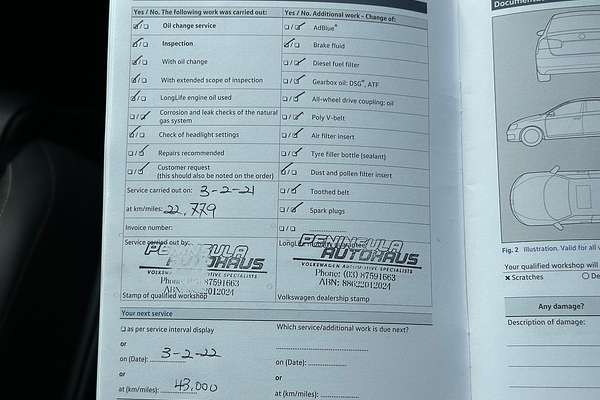 Yes / No. The following work was carried out:
Oil change service
Inspection
With oil change
With extended scope of inspection
LongLife engine oil used
Corrosion and leak checks of the natural
gas system
Check of headlight settings
Repairs recommended
Customer request
(this should also be noted on the order)
Service carried out on: 3-2-21
at km/miles: 22,779
Invoice number:
Service carried out by:
PENINSULA
AUTOHAUS
VOLKSWAGEN AUTOMOTIVE SPECIALISTS
Phone: (03) 87591663
ABN: 88622012024
Stamp of qualified workshop
Yes / No. Additional work - Change of:
AdBlue®
Brake fluid
Diesel fuel filter
Gearbox oil: DSG®, ATF
All-wheel drive coupling: oil
Poly V-belt
Air filter insert
Tyre filler bottle (sealant)
Dust and pollen filter insert
Toothed belt
Spark plugs
PENINSULA
AUTOHAUS
VOLKSWAGEN AUTOMOTIVE SPECIALISTS
Phone: (03) 87591663
ABN: 88622012024
Volkswagen dealership stamp
Your next service
as per service interval display
or
on (Date): 3-2-22
or
at (km/miles): 43,000
Which service/additional work is due next?
on (Date):
or
at (km/miles):
Fig. 2 Illustration. Valid for all
Your qualified workshop will
x Scratches
Any damage?
Description of damage: